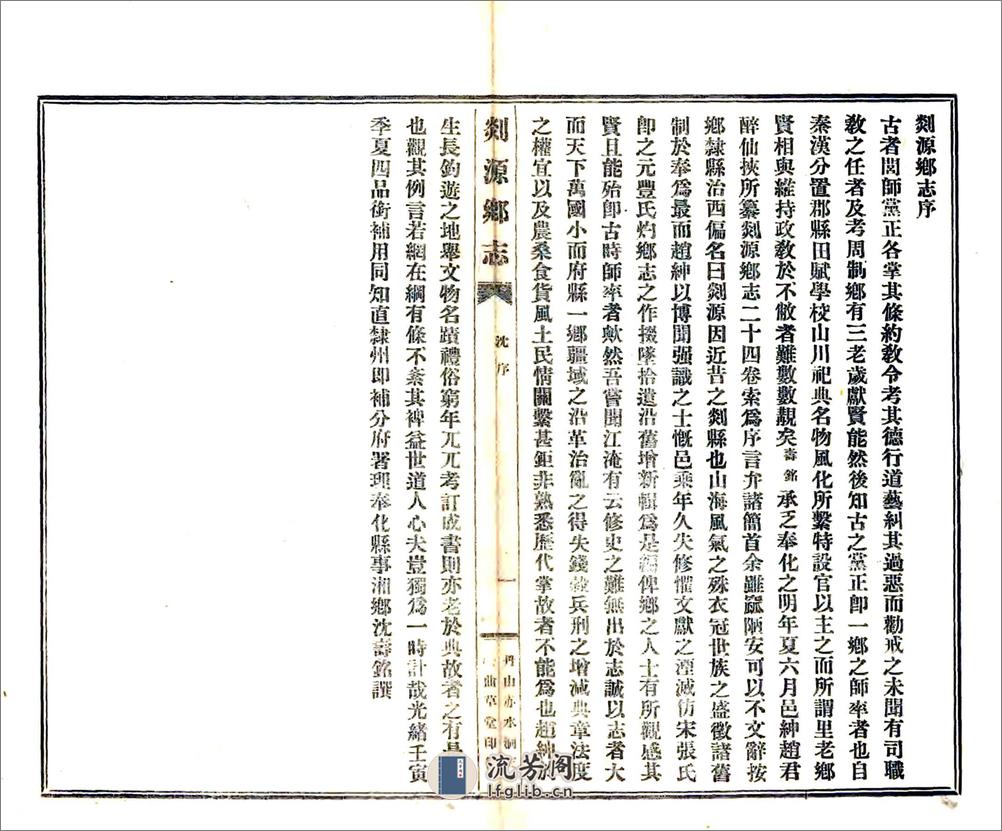 剡源鄉志序
古者閭師黨正各掌其條約教令考其德行道藝糾其過惡而勸戒之未聞有司職
教之任者及考周制鄉有三老歲獻賢能然後知古之黨正即一鄉之師率者也自
秦漢分置郡縣田賦學校山川祀典名物風化所繫特設官以主之而所謂里老鄉
賢相與維持政敎於不敝者難數數覯矣壽銘承乏奉化之明年夏六月邑紳趙君
醉仙挾所纂剡源鄉志二十四卷索爲序言弁諸簡首余雖竀陋安可以不文辭按
鄉隸縣治西偏名曰剡源因近昔之剡縣也山海風氣之殊衣冠世族之盛徵諸舊
制於奉爲最而趙紳以博聞强識之士慨邑乘年久失修懼文獻之湮滅仿宋張氏
卽之元豐氏灼鄉志之作掇墜拾遺沿舊增新輯爲是編俾鄉之人士有所觀感其
賢且能殆卽古時師率者歟然吾嘗聞江淹有云修史之難無出於志誠以志者大
而天下萬國小而府縣一鄉疆域之沿革治亂之得失錢穀兵刑之增減典章法度
之權宜以及農桑食貨風土民情關繫甚鉅非熟悉歷代掌故者不能爲也趙紳
剡源鄉志
沈序
一
丹山赤水洞
曲草堂印
生長釣遊之地舉文物名蹟禮俗窮年兀兀考訂成書則亦老於典故者之有是
也觀其例言若網在綱有條不紊其裨益世道人心夫豈獨爲一時計哉光緒壬寅
季夏四品銜補用同知直隸州卽補分府署理奉化縣事湘鄉沈壽銘譔
流芳阁
lfglib.cn